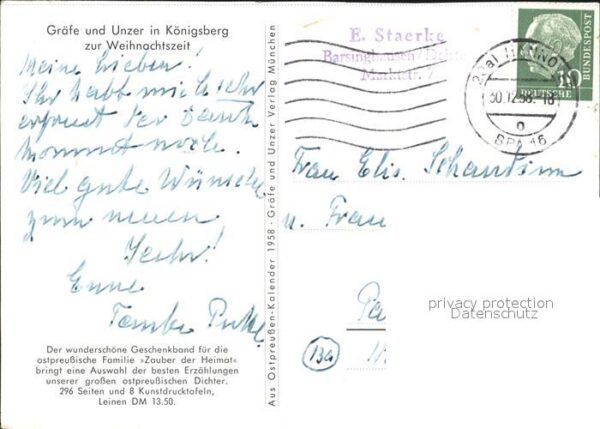 Gräfe und Unzer in Königsberg
zur Weihnachtszeit
Meine Lieben!
Ihr habt mich sehr
erfreut der Dank
kommt noch.
Viel gute Wünsche
zum neuen
Jahr!
Eure
Tante
Der wunderschöne Geschenkband für die
ostpreußische Familie »Zauber der Heimat«
bringt eine Auswahl der besten Erzählungen
unserer großen ostpreußischen Dichter.
296 Seiten und 8 Kunstdrucktafeln,
Leinen DM 13.50.
Aus Ostpreußen-Kalender 1958 · Gräfe und Unzer Verlag München
E. Staerke
Barsinghausen/Deister
Marktstr. 7
HANNO
30.12.58.-18
o
BPA 16
10
DEUTSCHE
BUNDESPOST
Frau Elis.
u. Frau
privacy protection
Datenschutz